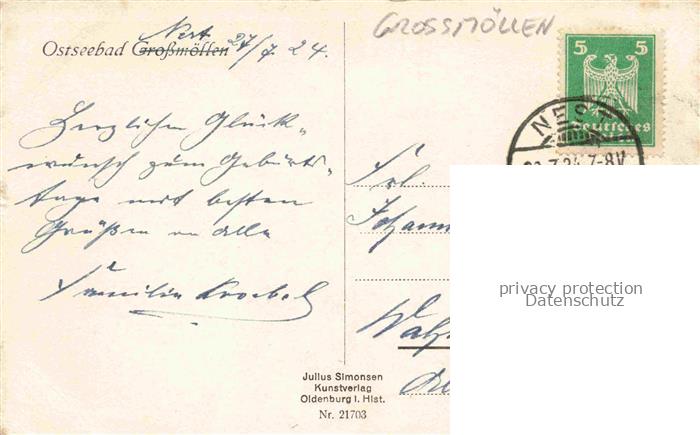 GROSSMÖLLEN
Nest
Ostseebad Großmöllen 27/7. 24.
5 5
Deutsches
NEST
7.24.7-8V
Herzlichen Glück-
wunsch zum Geburts-
tage mit besten
Grüßen an alle
Familie Kroebel
Frl.
Johann
privacy protection
Datenschutz
Julius Simonsen
Kunstverlag
Oldenburg i. Hlst.
Nr. 21703